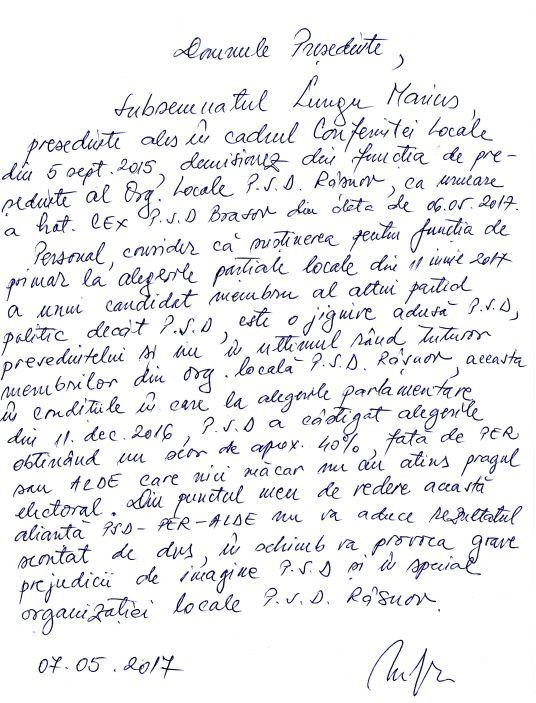 Domnule Președinte,
Subsemnatul Lungu Marius,
președinte ales în cadrul Conferinței Locale
din 5 sept. 2015, demisionez din funcția de pre-
ședinte al Org. Locale P.S.D. Râșnov, ca urmare
a hot. CEx P.S.D Brașov din data de 06.05.2017.
Personal, consider că susținerea pentru funcția de
primar la alegerile parțiale locale din 11 iunie 2017
a unui candidat membru al altui partid
politic decât P.S.D, este o jignire adusă P.S.D,
președintelui și nu în ultimul rând tuturor
membrilor din org. locală P.S.D. Râșnov, aceasta
în condițiile în care la alegerile parlamentare
din 11. dec. 2016, P.S.D a câștigat alegerile
obținând un scor de aprox. 40%, față de PER
sau ALDE care nici măcar nu au atins pragul
electoral. Din punctul meu de vedere această
alianță PSD-PER-ALDE nu va aduce rezultatul
scontat de dvs, în schimb va provoca grave
prejudicii de imagine P.S.D și în special
organizației locale P.S.D. Râșnov.
07.05.2017